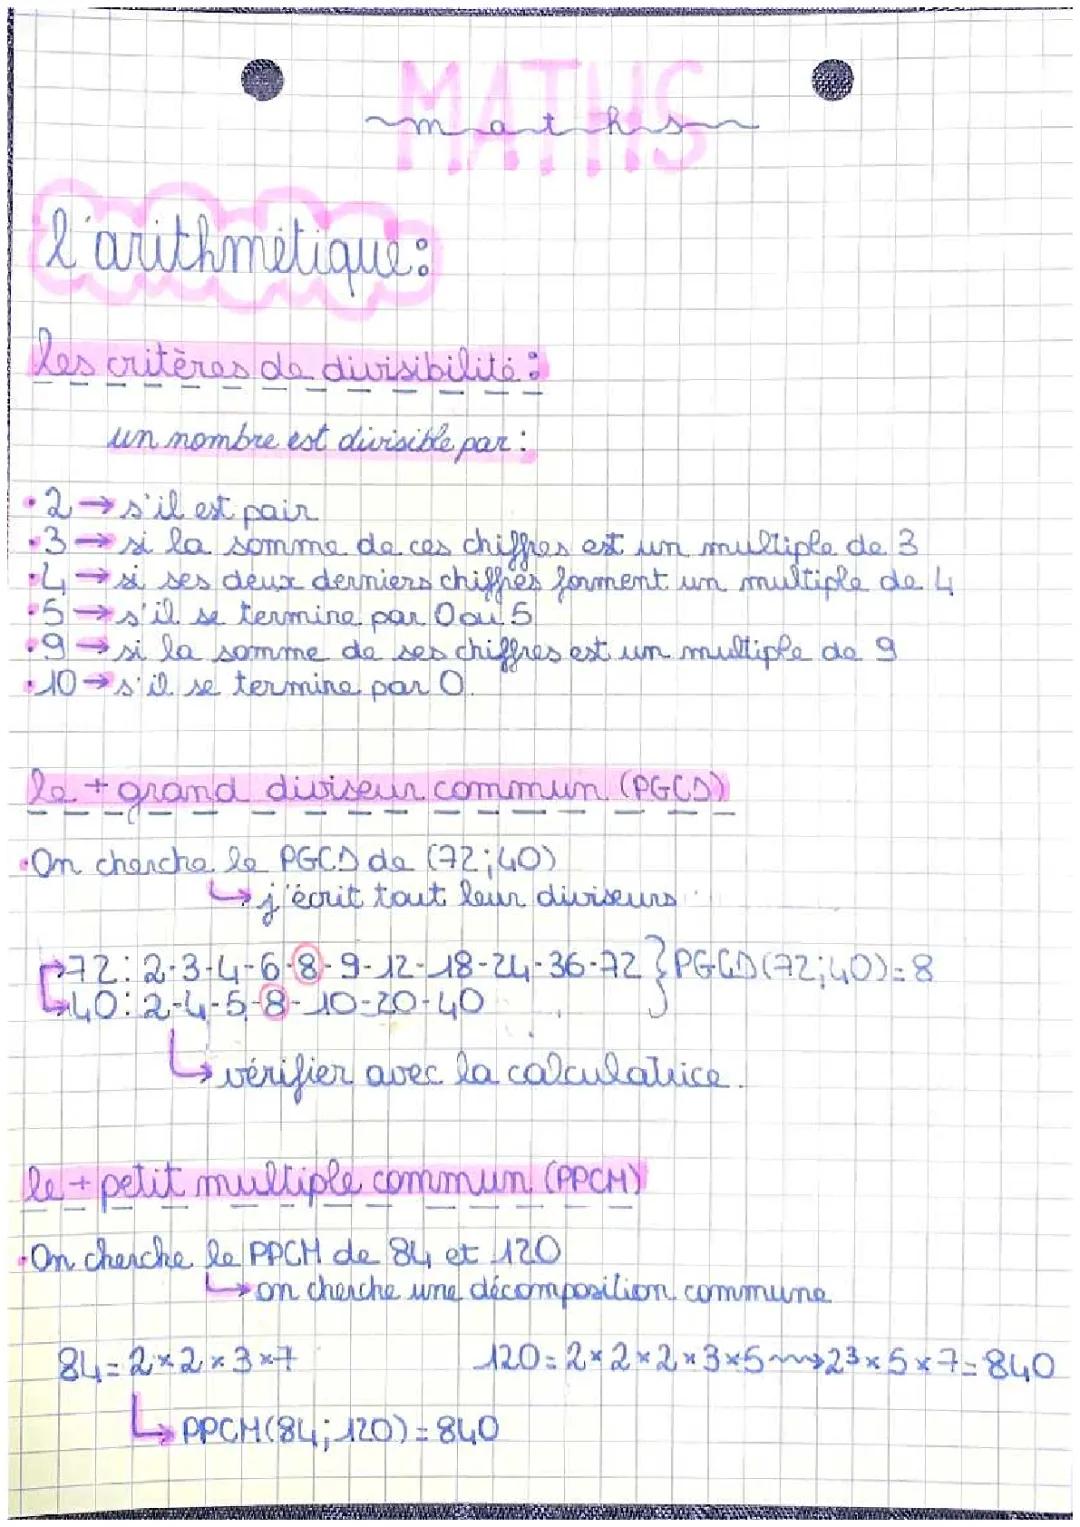 MATHS
maths
l'arithmétique:
les critères de divisibilité:
un nombre est divisible par:
• 2 → s'il est pair
• 3 → si la somme de ces chiffres est un multiple de 3
• 4 → si ses deux derniers chiffres forment un multiple de 4
• 5 → s'il se termine par 0 ou 5
• 9 → si la somme de ses chiffres est un multiple de 9
• 10 → s'il se termine par 0.
le + grand diviseur commun (PGCD)
• On cherche le PGCD de (72;40)
↳ j'écrit tout leur diviseurs
→ 72: 2-3-4-6-8-9-12-18-24-36-72 } PGCD(72;40)=8
↳ 40: 2-4-5-8-10-20-40
↳ vérifier avec la calculatrice.
le + petit multiple commun (PPCM)
• On cherche le PPCM de 84 et 120
↳ on cherche une décomposition commune
84 = 2×2×3×7 120 = 2×2×2×3×5 → 2³×5×7=840
↳ PPCM(84;120)=840